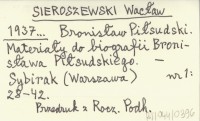 SIEROSZEWSKI Wacław
1937... Bronisław Piłsudski.
Materiały do biografii Broni-
sława Piłsudskiego. —
Sybirak (Warszawa) nr 1:
28-42.
Przedruk z Rocz. Podh.